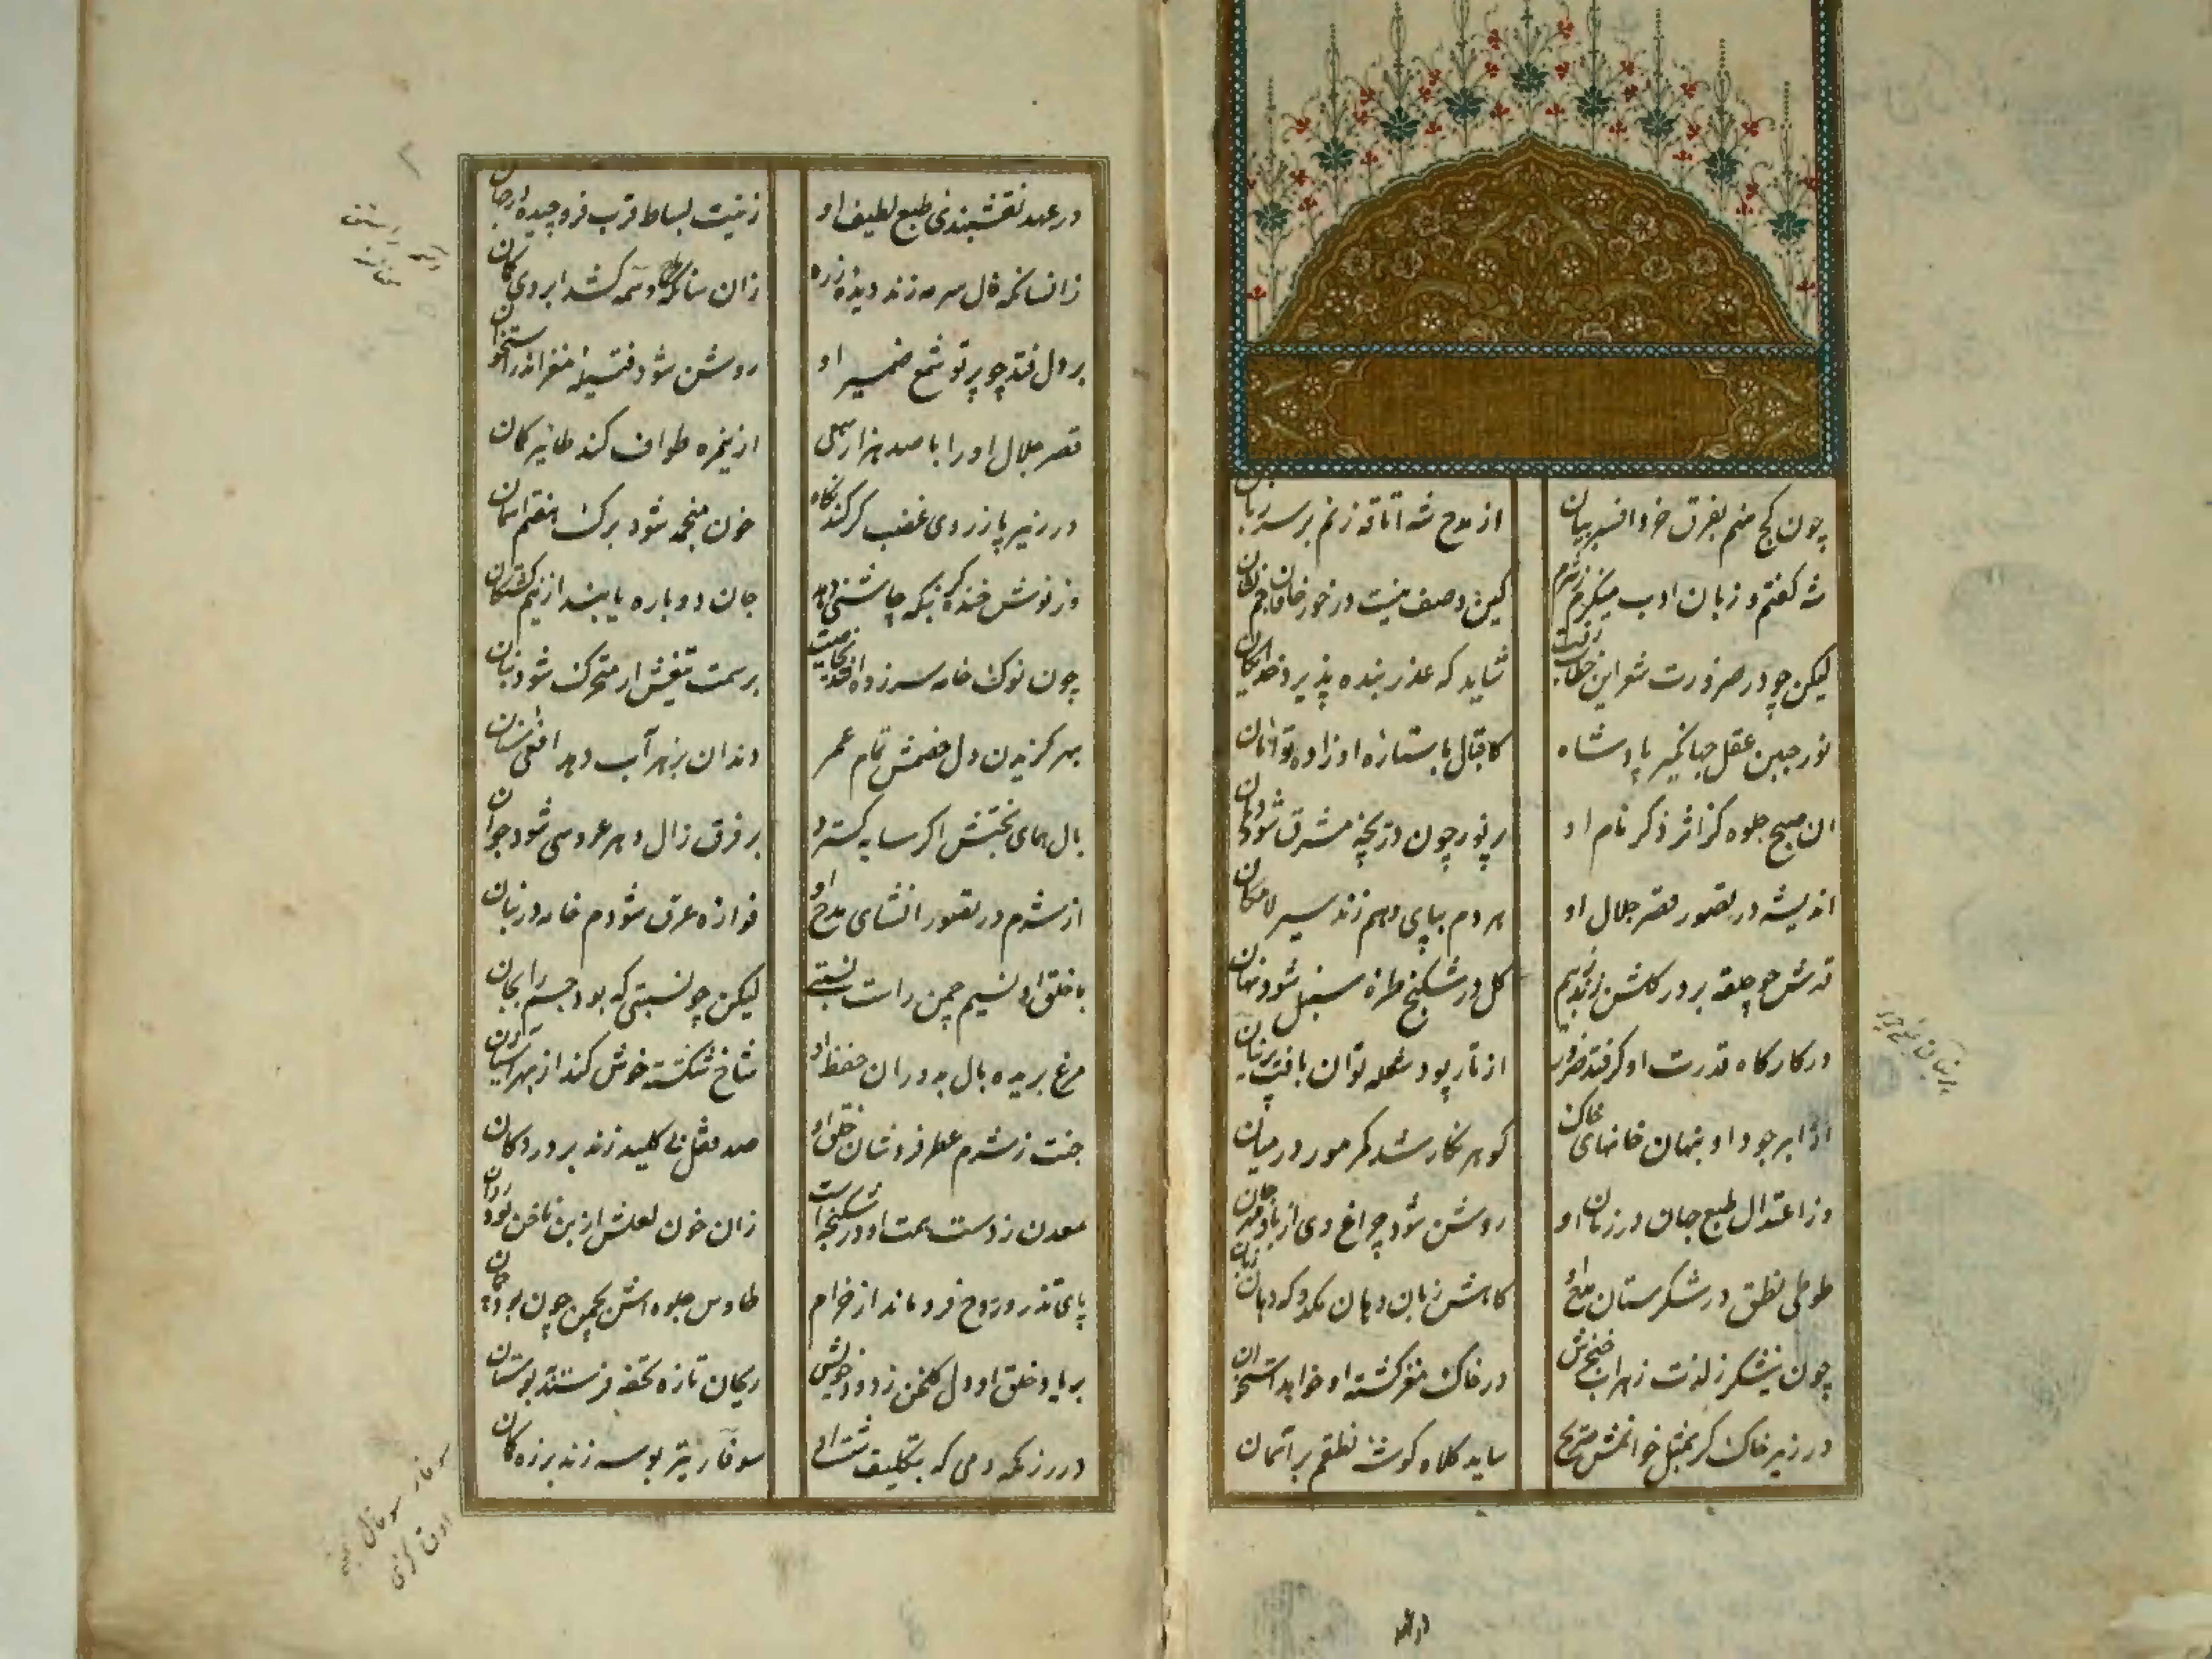 چون کج نهم بفرق خرد افسر بیان از مدح شه اتاقه زنم بر سر زبان
شه گفتم و زبان ادب میگزم ز شرم کین وصف نیست در خور خاقان جم نشان
لیکن چو در ضرورت شعر این خطاب رفت شاید که عذر بنده پذیرد خدایگان
نور جبین عقل جهانگیر پادشاه کاقبال با ستاره او زاده توامان
آن صبح جلوه کز اثر ذکر نام او پر نور چون دریچه مشرق شود دهان
اندیشه در تصور قصر جلال او هر دم بپای وهم زند سیر لامکان
چو حلقه بر در گلشن زند نسیم گل در شکنج طره سنبل شود نهان
در کارگاه قدرت او گر فتد ضرور از تار پود شعله توان بافت پرنیان
از ابر جود او بنهان خانهای خاک گوهر نگار شد کمر مور در میان
وز اعتدال طبع جهان در زمان او روشن شود چراغ دی از باد مهرجان
طوطی نطق در شکرستان مدح او کامش زبان دهان مکد و که دهان زبان
چون نیشکر ز لذت زهراب خنجرش در خاک مغز کشته او خواید استخوان
در زیر خاک گر بمثل خوانمش مدیح ساید کلاه گوشه نطقم بر آسمان
در عهد نقشبندی طبع لطیف او زینت بساط قرب فروچیده از جهان
زانسانکه فال سرمه زند دیده زره زان سانکه وسمه کشد ابروی کمان
بر دل فتد چو پرتو شمع ضمیر او روشن شود فتیله مغز اندر استخوان
قصر جلال او را با صد هزار میل از پنجره طواف کند طایر گمان
در زیر پا ز روی غضب گر کند نگاه خون منجمد شود برگ هفتم آسمان
وز نوش خنده گر نمکه چاشنی دهد جان دوباره یابند از نیم کشتگان
چون نوک خامه سر زده افتد بر سمت تیغش ار متحرک شود بنان
بهر گزیدن دل خصمش تمام عمر دندان بزهر آب دهد افعی سنان
بال همای بختش اگر سایه گسترد بر فرق زال دهر عروسی شود جوان
از شرم در تصور انشای مدح او فواره عرق شودم خامه در بنان
با خلق او نسیم چمن راست نسبتی لیکن چو نسبتی که بود جسم را بجان
مرغ بریده بال بدوران حفظ او شاخ شکسته خوش کند از بهر آشیان
جنت ز شرم عطر فروشان خلق او صد قفل بی کلید زند بر در دکان
معدن ز دست همت او در شکنجه است زان خون لعلش از بن ناخن بود روان
پای تذرو روح فرو ماند از خرام طاوس جلوه اش بچمن چون بود چمان
بر یاد خلق او دل گلخن ز دود خویش ریحان تازه تحفه فرستد ببوستان
در رزمگه دمی که بتکلیف شست او سوفار تیر بوسه زند بر زه کمان